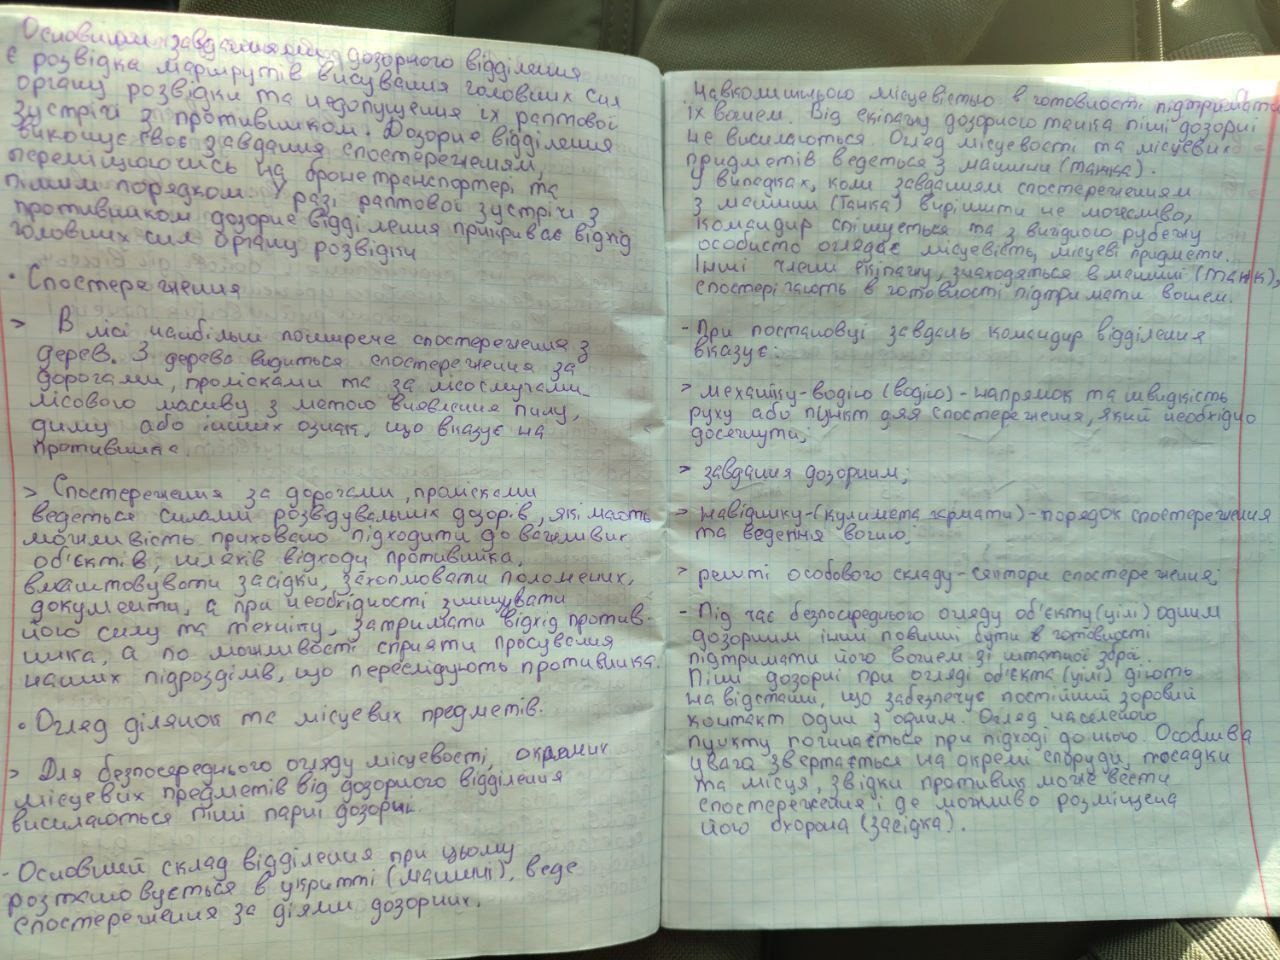 Основним завданням дозорного відділення
є розвідка маршрутів висування головних сил
органу розвідки та недопущення їх раптової
зустрічі з противником. Дозорне відділення
виконує своє завдання спостереженням,
переміщуючись на бронетранспортері та
пішим порядком. У разі раптової зустрічі з
противником дозорне відділення прикриває відхід
головних сил органу розвідки
• Спостереження
> В лісі найбільш поширене спостереження з
дерев. З дерева видиться спостереження за
дорогами, просіками та за лісосмугами
лісового масиву з метою виявлення пилу,
диму або інших ознак, що вказує на
противника.
> Спостереження за дорогами, просіками
ведеться силами розвідувальних дозорів, які мають
можливість приховано підходити до важливих
об'єктів, шляхів відходу противника,
влаштовувати засідки, захоплювати полонених,
документи, а при необхідності знищувати
його силу та техніку, затримати відхід против-
ника, а по можливості сприяти просування
наших підрозділів, що переслідують противника.
• Огляд ділянок та місцевих предметів.
> Для безпосереднього огляду місцевості, окремих
місцевих предметів від дозорного відділення
висилаються піші парні дозорні.
- Основний склад відділення при цьому
розташовується в укритті (машині), веде
спостереження за діями дозорних,
навколишнього місцевістю в готовності підтримати
їх вогнем. Від екіпажу дозорного танка піші дозорні
не висилаються. Огляд місцевості та місцевих
предметів ведеться з машини (танка).
У випадках, коли завданням спостереженням
з машини (танка) вирішити не можливо,
командир спішується та з вигідного рубежу
особисто оглядає місцевість, місцеві предмети.
Інші члени екіпажу, знаходяться в машині (танк),
спостерігають в готовності підтримати вогнем.
- При постановці завдань командир відділення
вказує:
> механіку-водію (водію) - напрямок та швидкість
руху або пункт для спостереження, який необхідно
досягнути;
> завдання дозорним;
> навіднику-(кулимета гармати) - порядок спостереження
та ведення вогню;
> решті особового складу - сектори спостереження;
- Під час безпосереднього огляду об'єкту (цілі) одним
дозорним інші повинні бути в готовності
підтримати його вогнем зі штатної зброї.
Піші дозорні при огляді об'єкта (цілі) діють
на відстані, що забезпечує постійний зоровий
контакт один з одним. Огляд населеного
пункту починається при підході до нього. Особлива
увага звертається на окремі споруди, посадки
та місця, звідки противник може вести
спостереження і де можливо розміщена
його охорона (засідка).